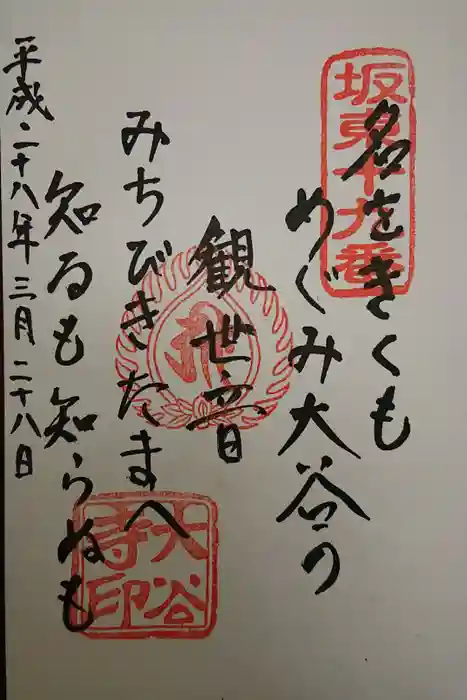 坂東十九番
名をきくも
めぐみ大谷の
観世音
みちびきたまへ
知るも知らぬも
平成二十八年三月二十八日
大谷寺印